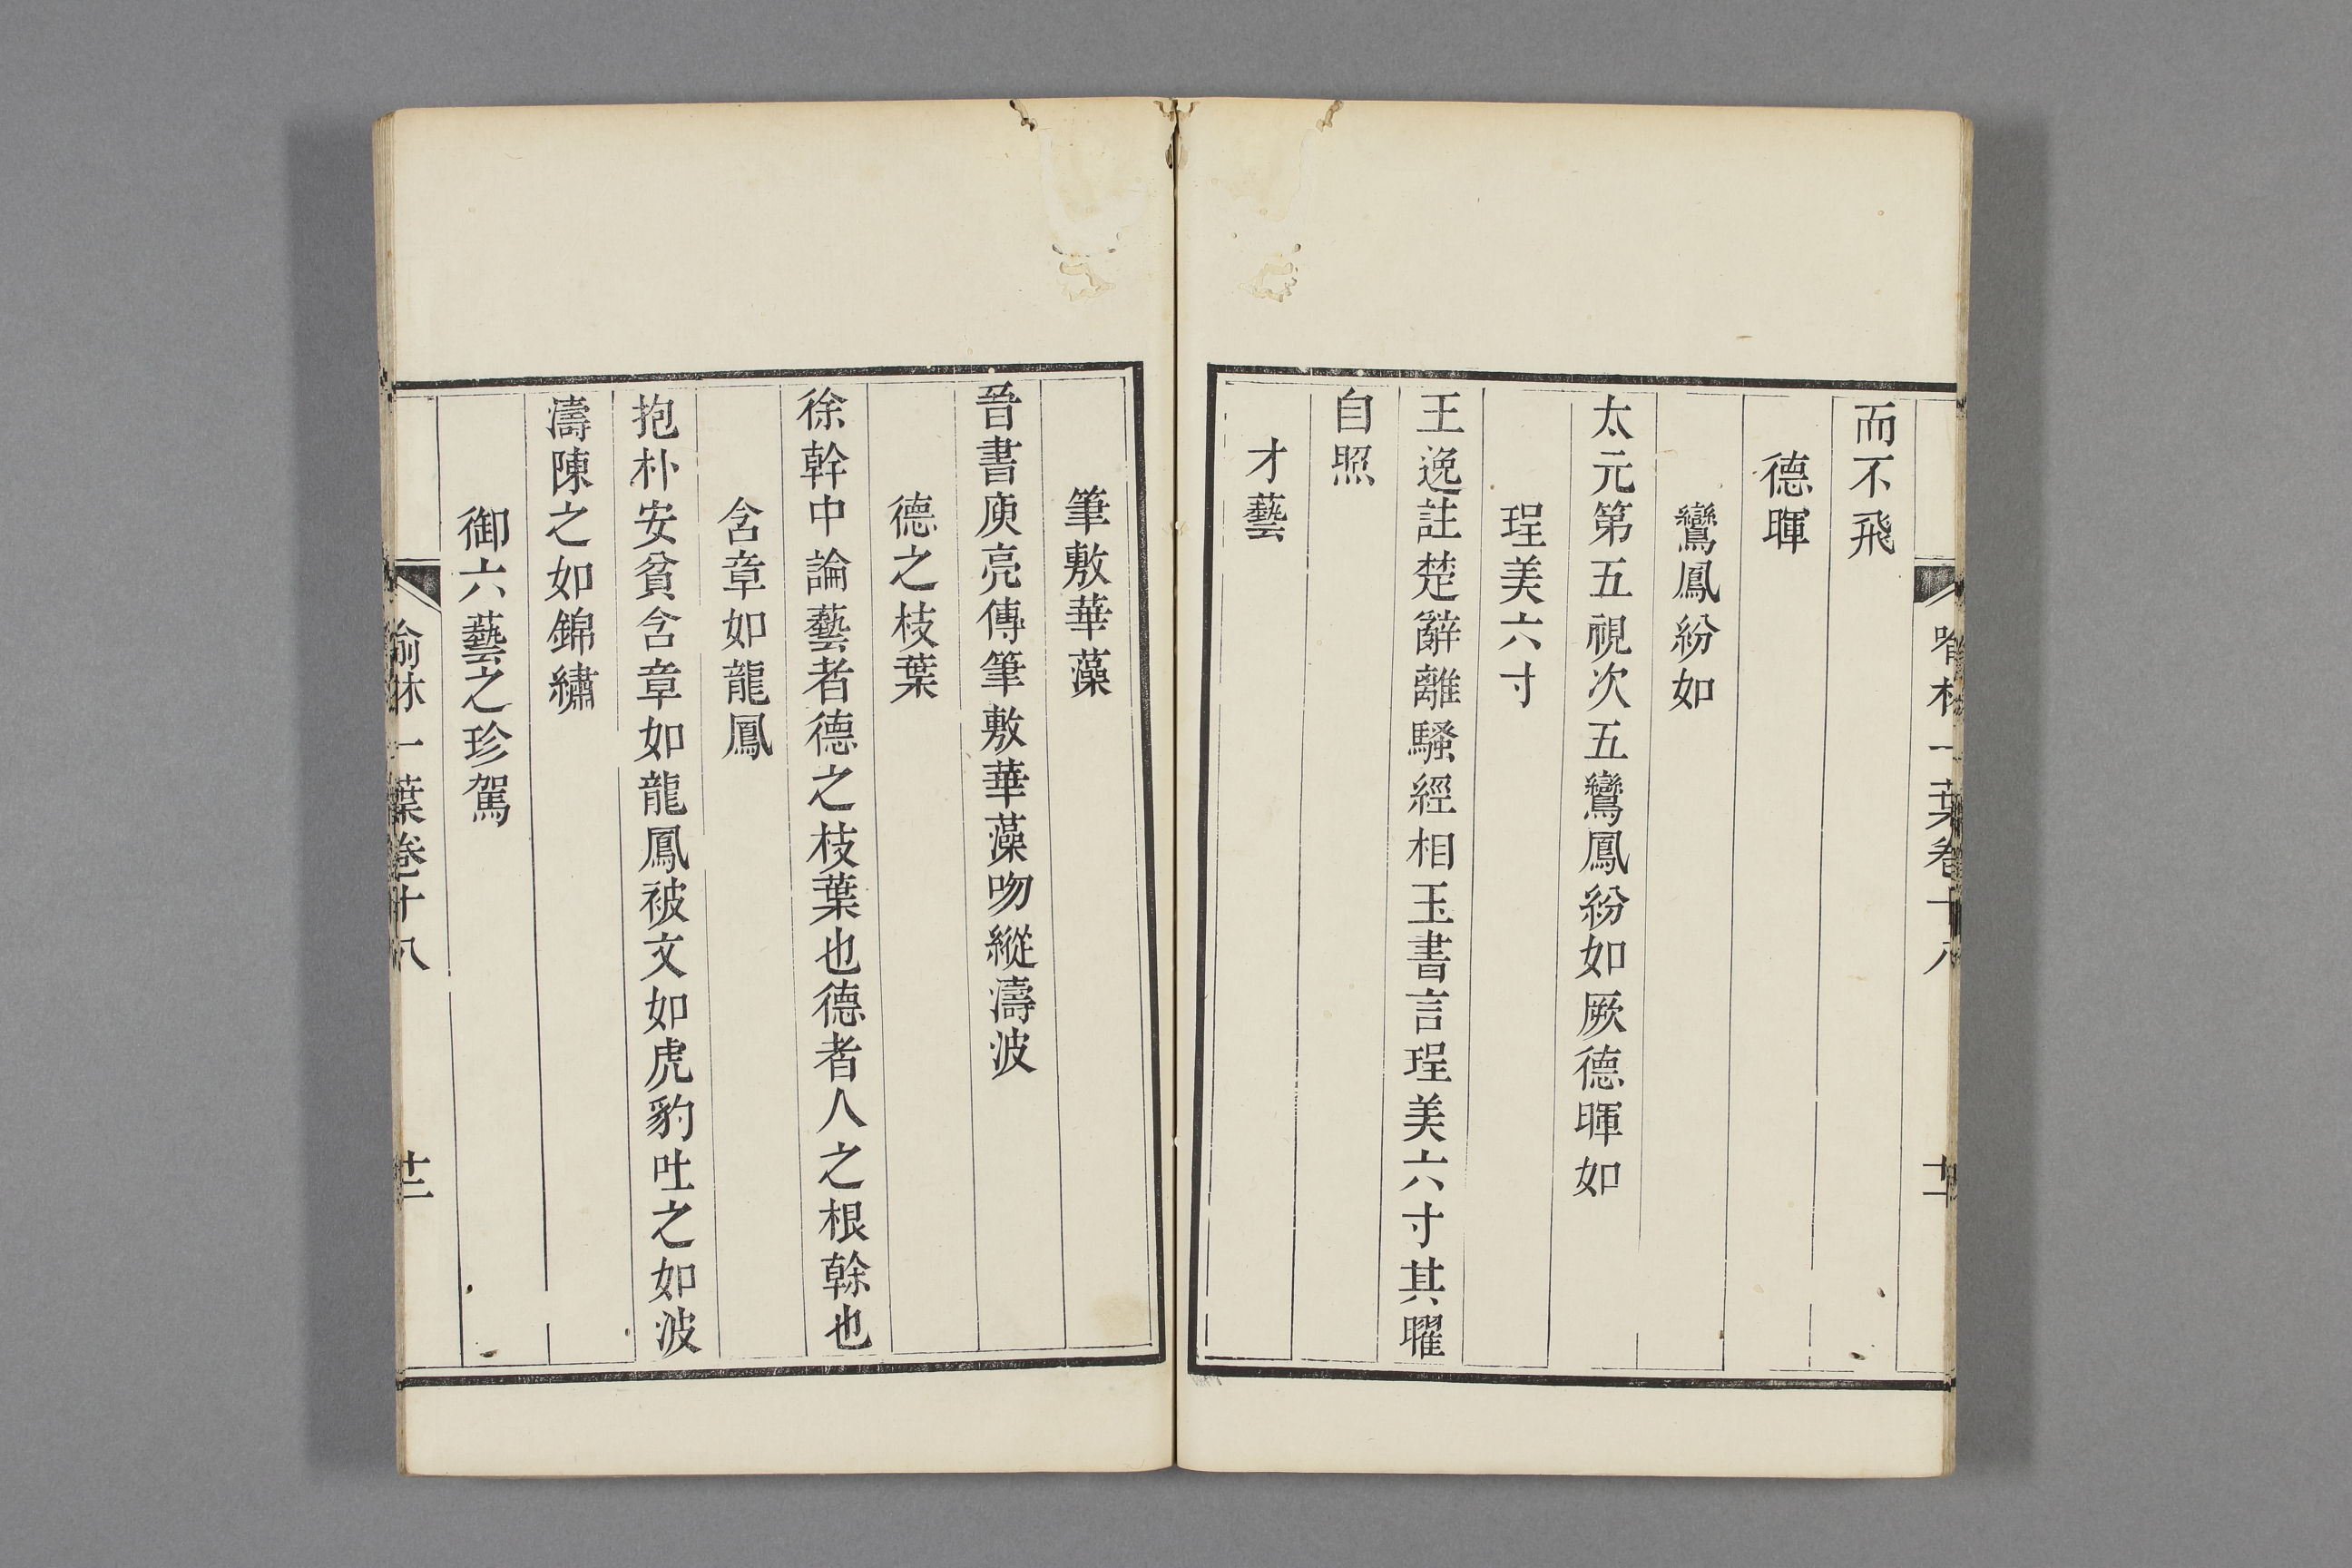 而不飛
德暉
鸞鳳紛如
太元第五視次五鸞鳳紛如厥德暉如
珵美六寸
王逸註楚辭離騷經相玉書言珵美六寸其曜
自照
才藝
筆敷華藻
晉書庾亮傳筆敷華藻吻縱濤波
德之枝葉
徐幹中論藝者德之枝葉也德者人之根榦也
含章如龍鳳
抱朴安貧含章如龍鳳被文如虎豹吐之如波
濤陳之如錦繡
御六藝之珍駕
喻林一葉卷十八